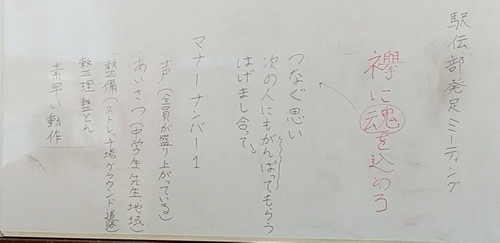 駅伝部発足ミーティング
襷に魂を込めろ
つなぐ思い
次の人にもがんばってもらう
はげまし合って
マナーナンバー1
・声(全員が盛り上がっている)
・あいさつ(中学生、先生、地域)
・整備(ストレッチ場、グラウンド、道具)
・整理整とん
・素早い動作